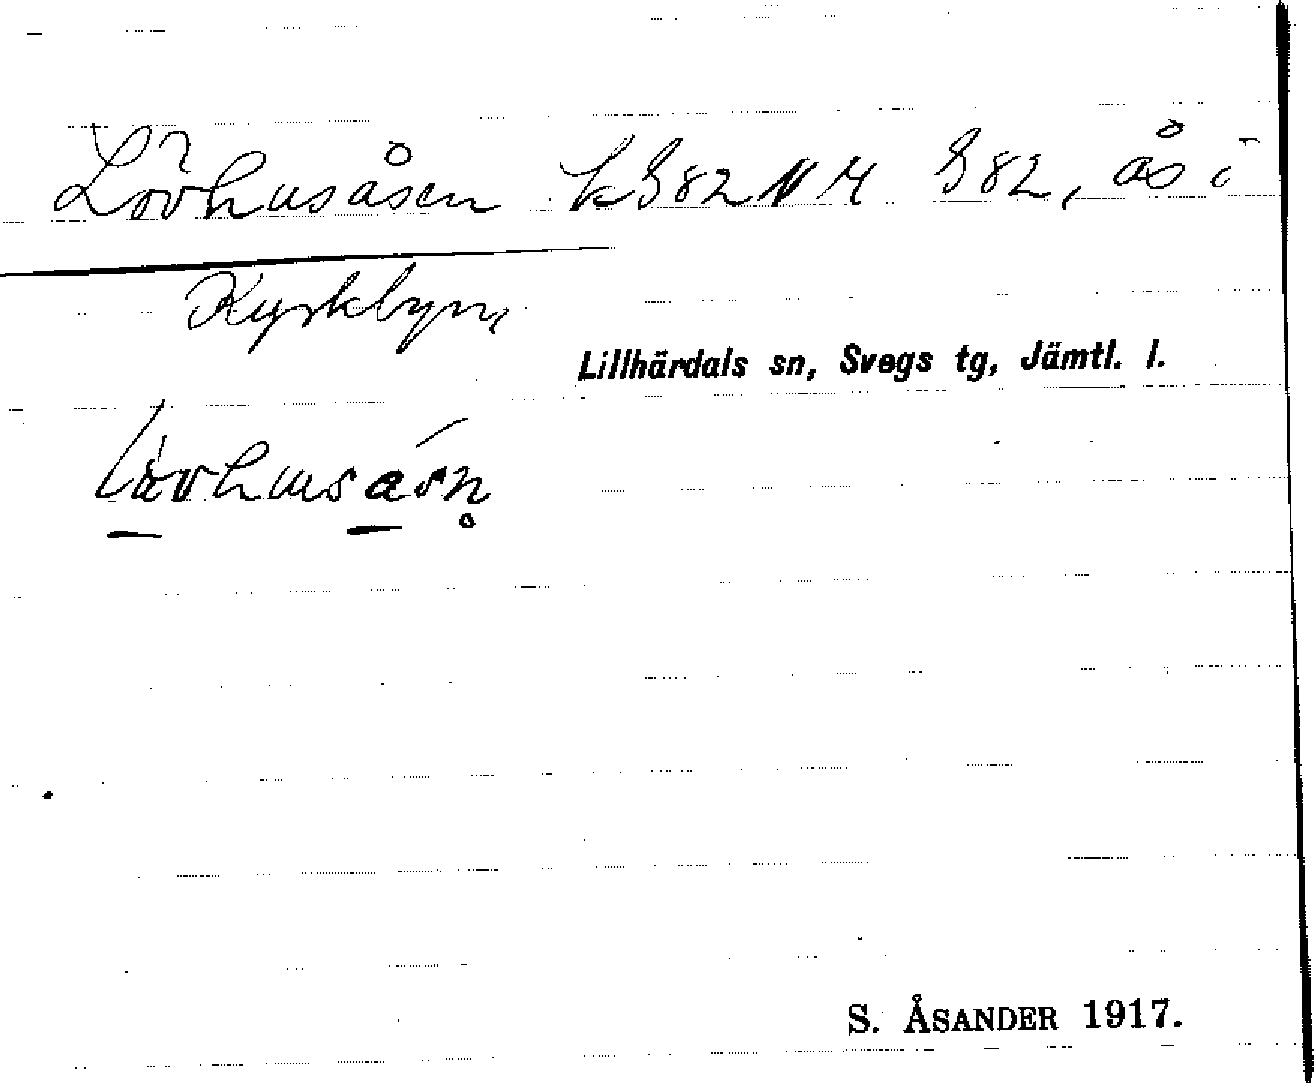 Lövhusåsen k982NM 982, ås i
Kyrkbyn,
Lillhärdals sn, Svegs tg, Jämtl. l.
S. ÅSANDER 1917.